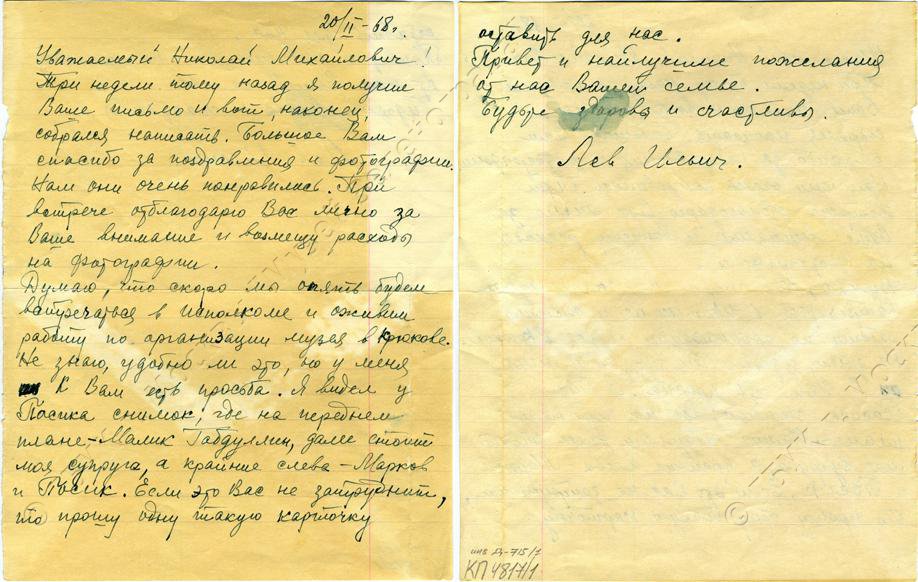 20/II-68г.
Уважаемый Николай Михайлович!
Три недели тому назад я получил
Ваше письмо и вот, наконец,
собрался написать. Большое Вам
спасибо за поздравления и фотографии.
Нам они очень понравились. При
встрече отблагодарю Вас лично за
Ваше внимание и возмещу расходы
на фотографии.
Думаю, что скоро мы опять будем
встречаться в исполкоме и оживим
работу по организации музея в Крюкове.
Не знаю, удобно ли это, но у меня
к Вам есть просьба. Я видел у
Пасика снимок, где на переднем
плане-Малик Габдуллин, далее стоит
моя супруга, а крайние слева-Марков
и Пасик. Если это Вас не затруднит,
то прошу одну такую карточку
оставить для нас.
Привет и наилучшие пожелания
от нас Вашей семье.
Будьте здоровы и счастливы.
Лев Ильич.
инв Д-715/1
КП 4817/1